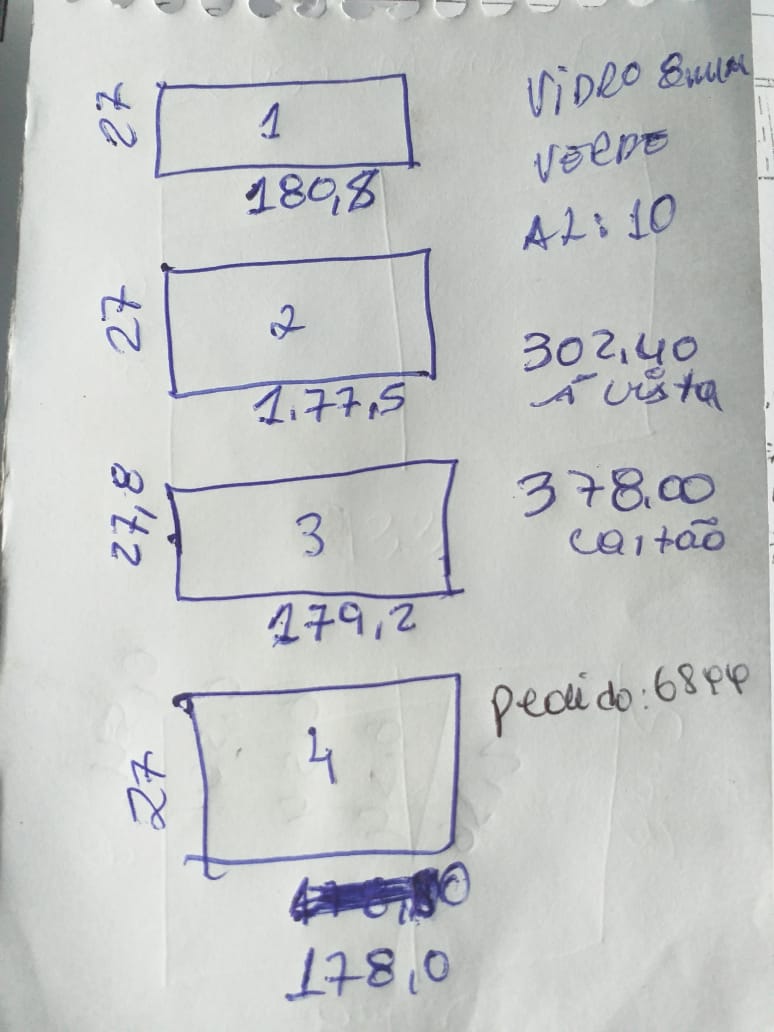 27
1
180,8
VIDRO 8mm
VERDE
27
2
1.77,5
302,40
À vista
27,8
3
179,2
378,00
cartão
27
4
178,0
pedido: